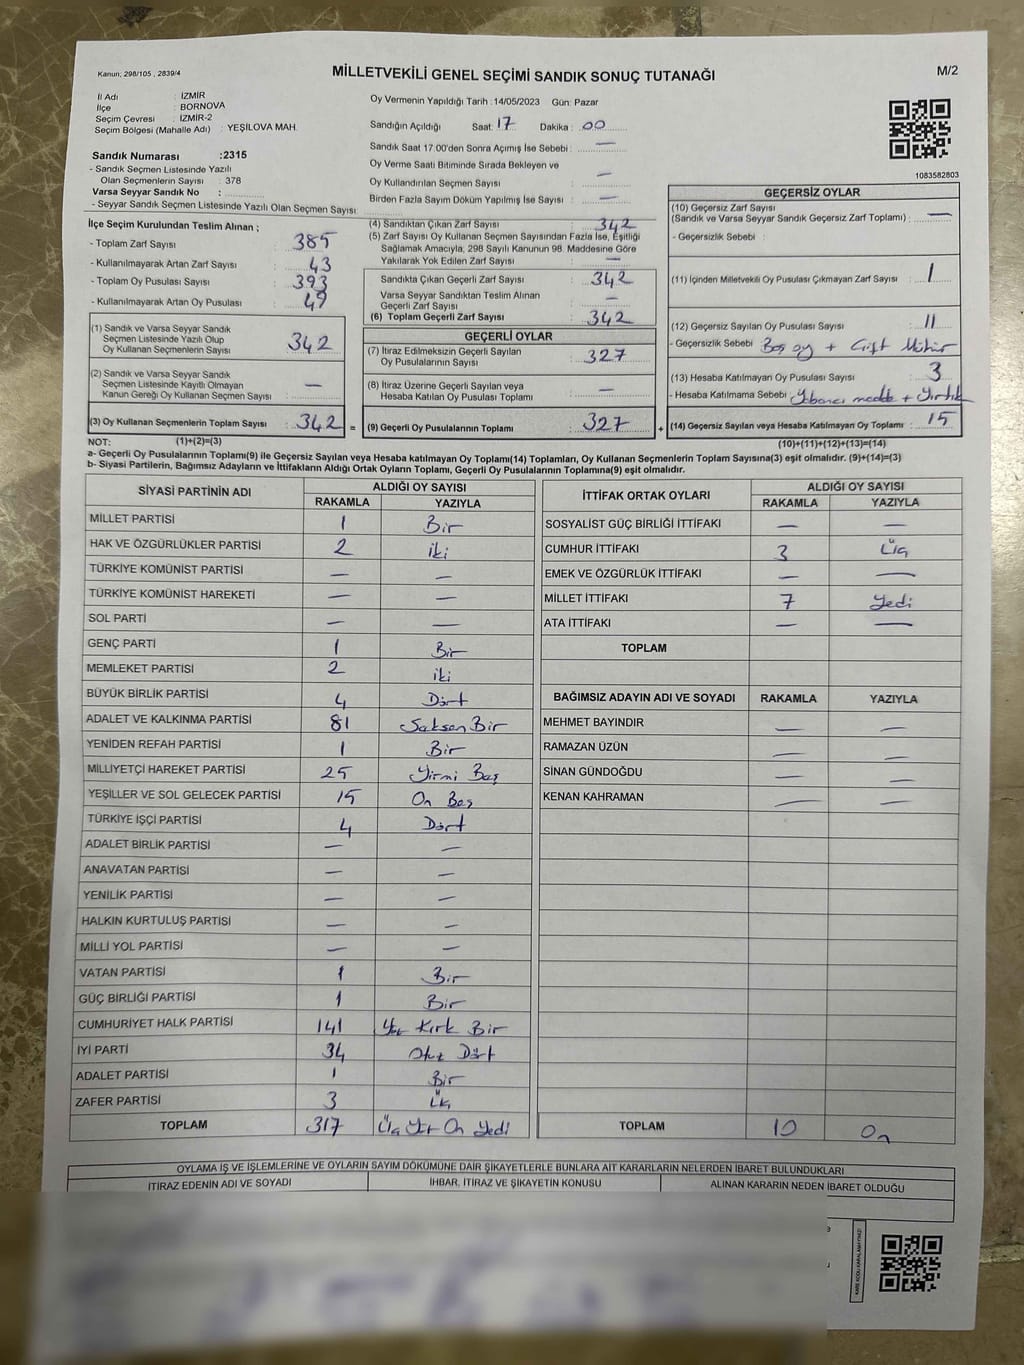 Kanun; 298/105 , 2839/4
MİLLETVEKİLİ GENEL SEÇİMİ SANDIK SONUÇ TUTANAĞI
M/2
İl Adı : İZMİR
İlçe : BORNOVA
Seçim Çevresi : İZMİR-2
Seçim Bölgesi (Mahalle Adı) : YEŞİLOVA MAH.
Sandık Numarası :2315
- Sandık Seçmen Listesinde Yazılı
Olan Seçmenlerin Sayısı : 378
Varsa Seyyar Sandık No :
- Seyyar Sandık Seçmen Listesinde Yazılı Olan Seçmen Sayısı:
Oy Vermenin Yapıldığı Tarih :14/05/2023 Gün: Pazar
Sandığın Açıldığı Saat: 17 Dakika : 00
Sandık Saat 17:00'den Sonra Açımış İse Sebebi : —
Oy Verme Saati Bitiminde Sırada Bekleyen ve
Oy Kullandırılan Seçmen Sayısı : —
Birden Fazla Sayım Döküm Yapılmış İse Sayısı : —
1083582803
İlçe Seçim Kurulundan Teslim Alınan ;
- Toplam Zarf Sayısı : 385
- Kullanılmayarak Artan Zarf Sayısı : 43
- Toplam Oy Pusulası Sayısı : 393
- Kullanılmayarak Artan Oy Pusulası : 49
(1) Sandık ve Varsa Seyyar Sandık
Seçmen Listesinde Yazılı Olup
Oy Kullanan Seçmenlerin Sayısı : 342
(2) Sandık ve Varsa Seyyar Sandık
Seçmen Listesinde Kayıtlı Olmayan
Kanun Gereği Oy Kullanan Seçmen Sayısı : —
(3) Oy Kullanan Seçmenlerin Toplam Sayısı : 342 =
(4) Sandıktan Çıkan Zarf Sayısı : 342
(5) Zarf Sayısı Oy Kullanan Seçmen Sayısından Fazla İse, Eşitliği
Sağlamak Amacıyla, 298 Sayılı Kanunun 98. Maddesine Göre
Yakılarak Yok Edilen Zarf Sayısı : —
Sandıkta Çıkan Geçerli Zarf Sayısı : 342
Varsa Seyyar Sandıktan Teslim Alınan
Geçerli Zarf Sayısı : —
(6) Toplam Geçerli Zarf Sayısı : 342
GEÇERLİ OYLAR
(7) İtiraz Edilmeksizin Geçerli Sayılan
Oy Pusulalarının Sayısı : 327
(8) İtiraz Üzerine Geçerli Sayılan veya
Hesaba Katılan Oy Pusulaları Toplamı : —
(9) Geçerli Oy Pusulalarının Toplamı : 327 +
GEÇERSİZ OYLAR
(10) Geçersiz Zarf Sayısı
(Sandık ve Varsa Seyyar Sandık Geçersiz Zarf Toplamı) : —
- Geçersizlik Sebebi :
(11) İçinden Milletvekili Oy Pusulası Çıkmayan Zarf Sayısı : 1
(12) Geçersiz Sayılan Oy Pusulası Sayısı : 11
- Geçersizlik Sebebi : Boş oy + Çift Mühür
(13) Hesaba Katılmayan Oy Pusulası Sayısı : 3
- Hesaba Katılmama Sebebi : Yabancı madde + Yırtık
(14) Geçersiz Sayılan veya Hesaba Katılmayan Oy Toplamı : 15
NOT: (1)+(2)=(3)
(10)+(11)+(12)+(13)=(14)
a- Geçerli Oy Pusulalarının Toplamı(9) ile Geçersiz Sayılan veya Hesaba katılmayan Oy Toplamı(14) Toplamları, Oy Kullanan Seçmenlerin Toplam Sayısına(3) eşit olmalıdır. (9)+(14)=(3)
b- Siyasi Partilerin, Bağımsız Adayların ve İttifakların Aldığı Ortak Oyların Toplamı, Geçerli Oy Pusulalarının Toplamına(9) eşit olmalıdır.
SİYASİ PARTİNİN ADI ALDIĞI OY SAYISI
RAKAMLA YAZIYLA
MİLLET PARTİSİ 1 Bir
HAK VE ÖZGÜRLÜKLER PARTİSİ 2 iki
TÜRKİYE KOMÜNİST PARTİSİ — —
TÜRKİYE KOMÜNİST HAREKETİ — —
SOL PARTİ — —
GENÇ PARTİ 1 Bir
MEMLEKET PARTİSİ 2 iki
BÜYÜK BİRLİK PARTİSİ 4 Dört
ADALET VE KALKINMA PARTİSİ 81 Seksen Bir
YENİDEN REFAH PARTİSİ 1 Bir
MİLLİYETÇİ HAREKET PARTİSİ 25 Yirmi Beş
YEŞİLLER VE SOL GELECEK PARTİSİ 15 On Beş
TÜRKİYE İŞÇİ PARTİSİ 4 Dört
ADALET BİRLİK PARTİSİ — —
ANAVATAN PARTİSİ — —
YENİLİK PARTİSİ — —
HALKIN KURTULUŞ PARTİSİ — —
MİLLİ YOL PARTİSİ — —
VATAN PARTİSİ 1 Bir
GÜÇ BİRLİĞİ PARTİSİ 1 Bir
CUMHURİYET HALK PARTİSİ 141 Yüz Kırk Bir
İYİ PARTİ 34 Otuz Dört
ADALET PARTİSİ 1 Bir
ZAFER PARTİSİ 3 Üç
TOPLAM 317 Üç Yüz On Yedi
İTTİFAK ORTAK OYLARI ALDIĞI OY SAYISI
RAKAMLA YAZIYLA
SOSYALİST GÜÇ BİRLİĞİ İTTİFAKI — —
CUMHUR İTTİFAKI 3 Üç
EMEK VE ÖZGÜRLÜK İTTİFAKI — —
MİLLET İTTİFAKI 7 Yedi
ATA İTTİFAKI — —
TOPLAM
BAĞIMSIZ ADAYIN ADI VE SOYADI RAKAMLA YAZIYLA
MEHMET BAYINDIR — —
RAMAZAN ÜZÜN — —
SİNAN GÜNDOĞDU — —
KENAN KAHRAMAN — —
TOPLAM 10 On
OYLAMA İŞ VE İŞLEMLERİNE VE OYLARIN SAYIM DÖKÜMÜNE DAİR ŞİKAYETLERLE BUNLARA AİT KARARLARIN NELERDEN İBARET BULUNDUKLARI
İTİRAZ EDENİN ADI VE SOYADI İHBAR, İTİRAZ VE ŞİKAYETİN KONUSU ALINAN KARARIN NEDEN İBARET OLDUĞU